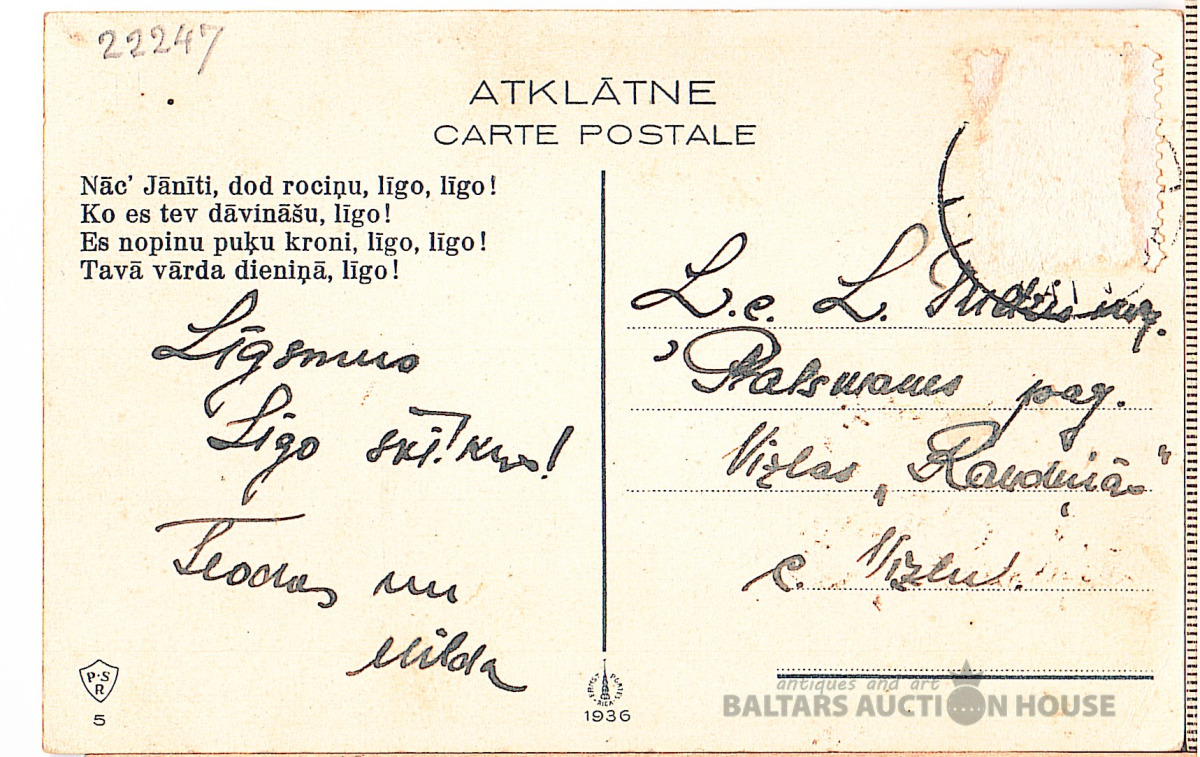 22247
ATKLĀTNE
CARTE POSTALE
Nāc’ Jānīti, dod rociņu, līgo, līgo!
Ko es tev dāvināšu, līgo!
Es nopinu puķu kroni, līgo, līgo!
Tavā vārda dieniņā, līgo!
Līgsmus
Līgo
Teodors un
Milda
L.c. L.
Palsmanes pag.
Vizlas „
c. Vizlu.
P.S
R
5
1936
antiques and art
BALTARS AUCTION HOUSE